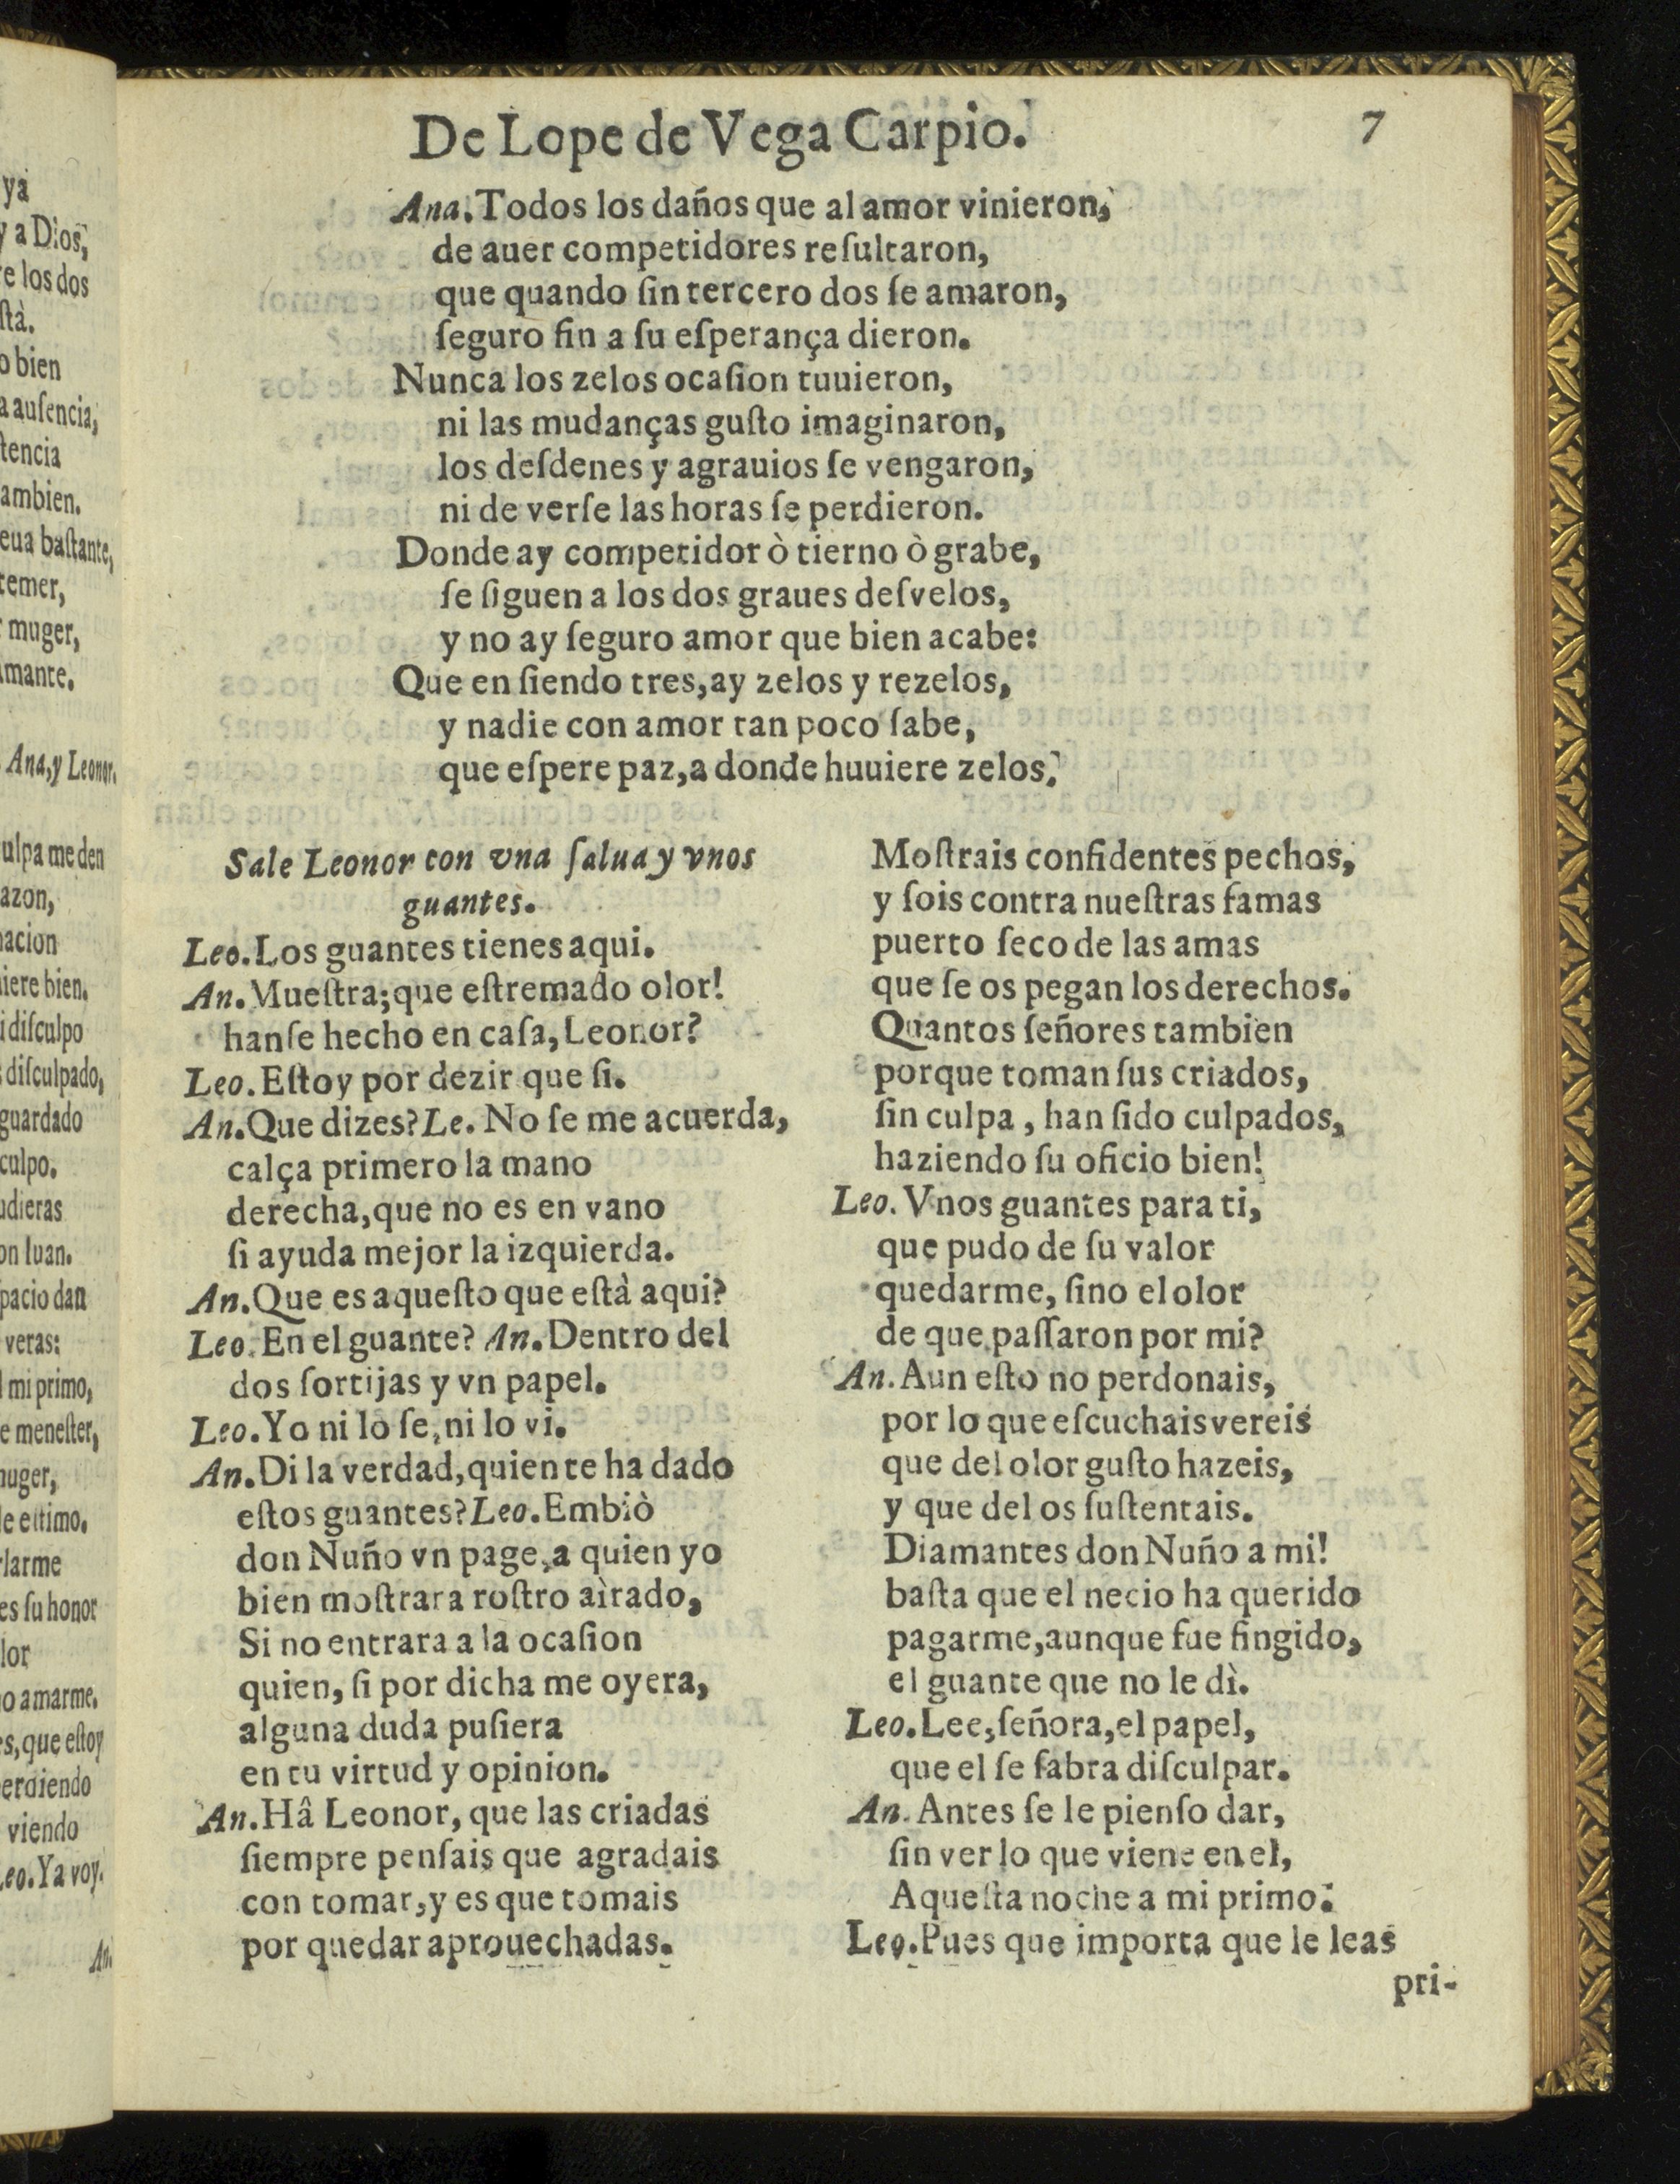 De Lope de Vega Carpio. 7
Ana. Todos los daños que al amor vinieron,
de auer competidores reſultaron,
que quando ſin tercero dos ſe amaron,
ſeguro fin a ſu eſperança dieron.
Nunca los zelos ocaſion tuuieron,
ni las mudanças guſto imaginaron,
los deſdenes y agrauios ſe vengaron,
ni de verſe las horas ſe perdieron.
Donde ay competidor ò tierno ò grabe,
ſe ſiguen a los dos graues deſvelos,
y no ay ſeguro amor que bien acabe:
Que en ſiendo tres, ay zelos y rezelos,
y nadie con amor tan poco ſabe,
que eſpere paz, a donde huuiere zelos.
Sale Leonor con vna ſalua y vnos
guantes.
Leo. Los guantes tienes aqui.
An. Mueſtra; que eſtremado olor!
hanſe hecho en caſa, Leonor?
Leo. Eſtoy por dezir que ſi.
An. Que dizes? Le. No ſe me acuerda,
calça primero la mano
derecha, que no es en vano
ſi ayuda mejor la izquierda.
An. Que es aqueſto que eſtà aqui?
Leo. En el guante? An. Dentro del
dos ſortijas y vn papel.
Leo. Yo ni lo ſe, ni lo vi.
An. Di la verdad, quien te ha dado
eſtos guantes? Leo. Embiò
don Nuño vn page, a quien yo
bien moſtrara roſtro aìrado,
Si no entrara a la ocaſion
quien, ſi por dicha me oyera,
alguna duda puſiera
en tu virtud y opinion.
An. Hâ Leonor, que las criadas
ſiempre penſais que agradais
con tomar, y es que tomais
por quedar aprouechadas.
Moſtrais confidentes pechos,
y ſois contra nueſtras famas
puerto ſeco de las amas
que ſe os pegan los derechos.
Quantos ſeñores tambien
porque toman ſus criados,
ſin culpa, han ſido culpados,
haziendo ſu oficio bien!
Leo. Vnos guantes para ti,
que pudo de ſu valor
quedarme, ſino el olor
de que paſſaron por mi?
An. Aun eſto no perdonais,
por lo que eſcuchais vereis
que del olor guſto hazeis,
y que del os ſuſtentais.
Diamantes don Nuño a mi!
baſta que el necio ha querido
pagarme, aunque fue fingido,
el guante que no le dì.
Leo. Lee, ſeñora, el papel,
que el ſe ſabra diſculpar.
An. Antes ſe le pienſo dar,
ſin ver lo que viene en el,
Aqueſta noche a mi primo.
Leo. Pues que importa que le leas
pri-